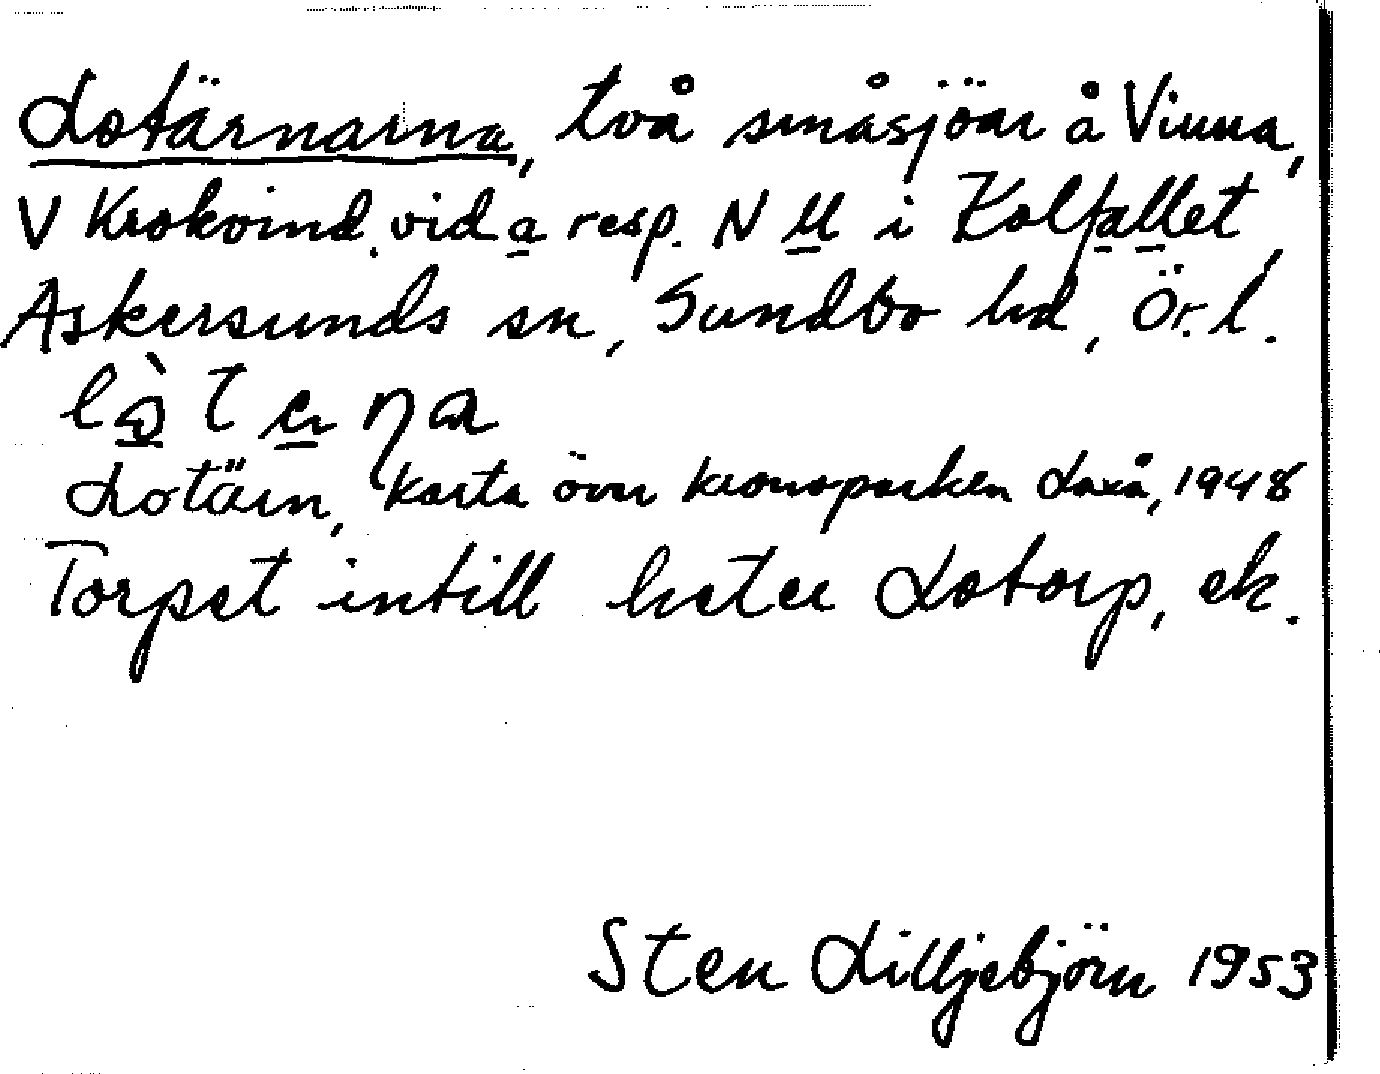 Lotärnarna, två småsjöar å Vinna,
V Krokvind. vid a resp. N ll i Kolfallet,
Askersunds sn, Sundbo hd, Ör. l.
Lotärn, Karta över kronoparken Laxå, 1948
Torpet intill heter Lotorp, ek.
Sten Lilljebjörn 1953